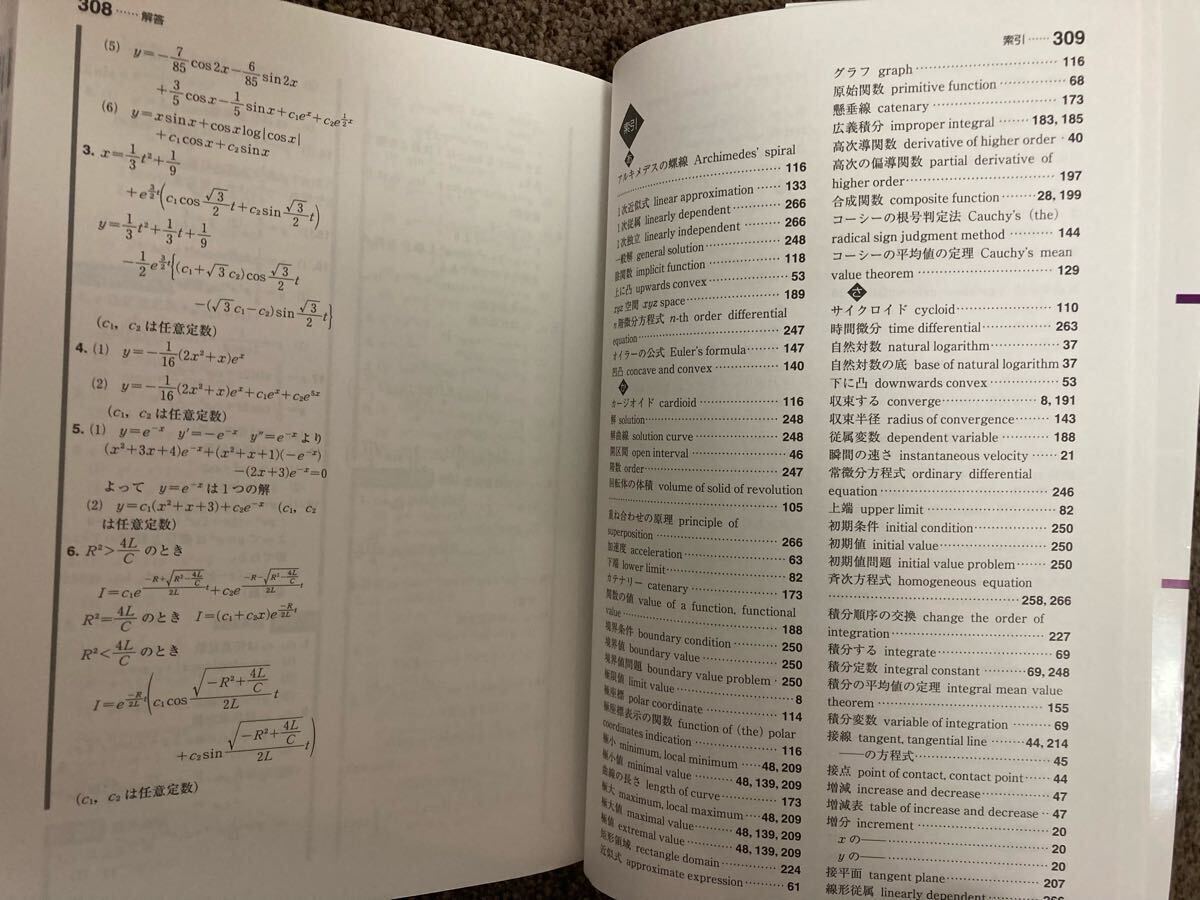 308……解答
(5) y=−7/85 cos2x−6/85 sin2x
+3/5 cosx−1/5 sinx+c₁eˣ+c₂e^{1/2 x}
(6) y=xsinx+cosxlog|cosx|
+c₁cosx+c₂sinx
3. x=1/3 t²+1/9
+e^{3/2 t}(c₁cos √3/2 t+c₂sin √3/2 t)
y=1/3 t²+1/3 t+1/9
−1/2 e^{3/2 t}{(c₁+√3 c₂)cos √3/2 t
−(√3 c₁−c₂)sin √3/2 t}
(c₁, c₂ は任意定数)
4. (1) y=−1/16 (2x²+x)eˣ
(2) y=−1/16 (2x²+x)eˣ+c₁eˣ+c₂e^{5x}
(c₁, c₂ は任意定数)
5. (1) y=e^{−x} y′=−e^{−x} y″=e^{−x} より
(x²+3x+4)e^{−x}+(x²+x+1)(−e^{−x})
−(2x+3)e^{−x}=0
よって y=e^{−x} は1つの解
(2) y=c₁(x²+x+3)+c₂e^{−x} (c₁, c₂
は任意定数)
6. R²>4L/C のとき
I=c₁e^{(−R+√(R²−4L/C))/2L t}+c₂e^{(−R−√(R²−4L/C))/2L t}
R²=4L/C のとき I=(c₁+c₂x)e^{−R/2L t}
R²<4L/C のとき
I=e^{−R/2L t}(c₁cos √(−R²+4L/C)/2L t
+c₂sin √(−R²+4L/C)/2L t)
(c₁, c₂ は任意定数)
索引……309
索引
あ
アルキメデスの螺線 Archimedes' spiral
……116
1次近似式 linear approximation……133
1次従属 linearly dependent……266
1次独立 linearly independent……266
一般解 general solution……248
陰関数 implicit function……118
上に凸 upwards convex……53
xyz空間 xyz space……189
n階微分方程式 n-th order differential
equation……247
オイラーの公式 Euler's formula……147
凹凸 concave and convex……140
か
カージオイド cardioid……116
解 solution……248
解曲線 solution curve……248
開区間 open interval……46
階数 order……247
回転体の体積 volume of solid of revolution
……105
重ね合わせの原理 principle of
superposition……266
加速度 acceleration……63
下端 lower limit……82
カテナリー catenary……173
関数の値 value of a function, functional
value……188
境界条件 boundary condition……250
境界値 boundary value……250
境界値問題 boundary value problem・250
極限値 limit value……8
極座標 polar coordinate……114
極座標表示の関数 function of (the) polar
coordinates indication……116
極小 minimum, local minimum……48, 209
極小値 minimal value……48, 139, 209
曲線の長さ length of curve……173
極大 maximum, local maximum……48, 209
極大値 maximal value……48, 139, 209
極値 extremal value……48, 139, 209
矩形領域 rectangle domain……224
近似式 approximate expression……61
グラフ graph……116
原始関数 primitive function……68
懸垂線 catenary……173
広義積分 improper integral……183, 185
高次導関数 derivative of higher order・40
高次の偏導関数 partial derivative of
higher order……197
合成関数 composite function……28, 199
コーシーの根号判定法 Cauchy's (the)
radical sign judgment method……144
コーシーの平均値の定理 Cauchy's mean
value theorem……129
さ
サイクロイド cycloid……110
時間微分 time differential……263
自然対数 natural logarithm……37
自然対数の底 base of natural logarithm 37
下に凸 downwards convex……53
収束する converge……8, 191
収束半径 radius of convergence……143
従属変数 dependent variable……188
瞬間の速さ instantaneous velocity……21
常微分方程式 ordinary differential
equation……246
上端 upper limit……82
初期条件 initial condition……250
初期値 initial value……250
初期値問題 initial value problem……250
斉次方程式 homogeneous equation
……258, 266
積分順序の交換 change the order of
integration……227
積分する integrate……69
積分定数 integral constant……69, 248
積分の平均値の定理 integral mean value
theorem……155
積分変数 variable of integration……69
接線 tangent, tangential line……44, 214
——の方程式……45
接点 point of contact, contact point……44
増減 increase and decrease……47
増減表 table of increase and decrease……47
増分 increment……20
xの——……20
yの——……20
接平面 tangent plane……207
線形従属 linearly dependent……266